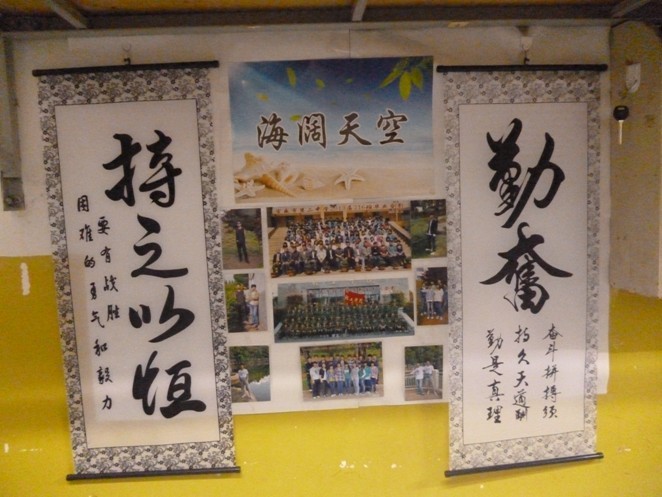 持之以恒
要有战胜
困难的勇气和毅力
海阔天空
勤奮
奋斗拼搏须
持久天道酬
勤是真理